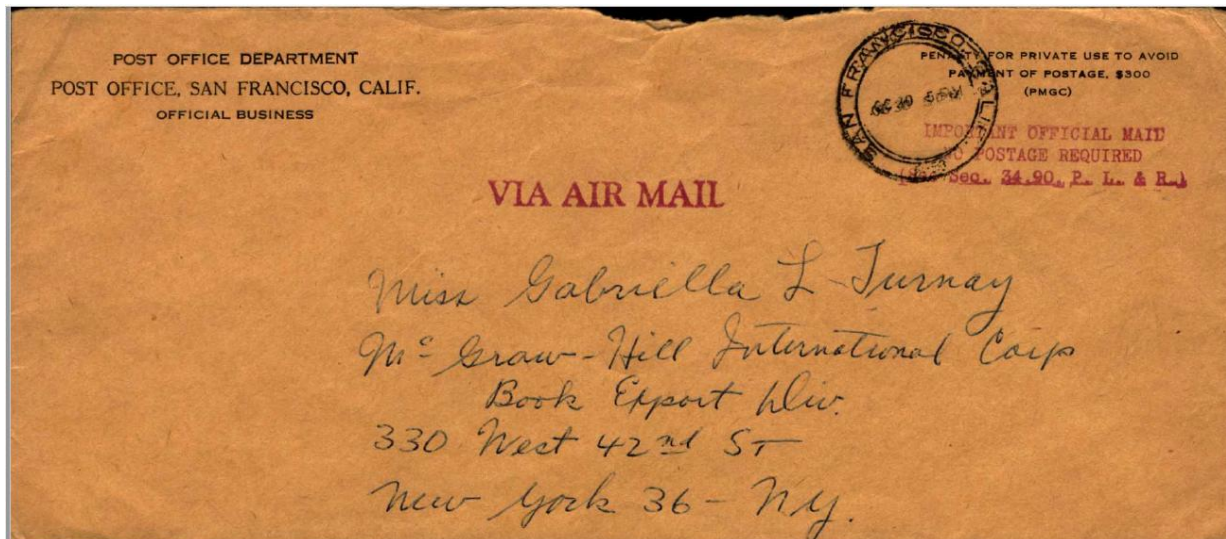 POST OFFICE DEPARTMENT
POST OFFICE, SAN FRANCISCO, CALIF.
OFFICIAL BUSINESS
PENALTY FOR PRIVATE USE TO AVOID
PAYMENT OF POSTAGE, $300
(PMGC)
SAN FRANCISCO, CALIF.
5 PM
IMPORTANT OFFICIAL MAIL
NO POSTAGE REQUIRED
Sec. 34.90, P. L. & R.)
VIA AIR MAIL
Miss Gabriella L Turnay
Mc Graw-Hill International Corp
Book Export Div.
330 West 42nd ST
New York 36 - NY.